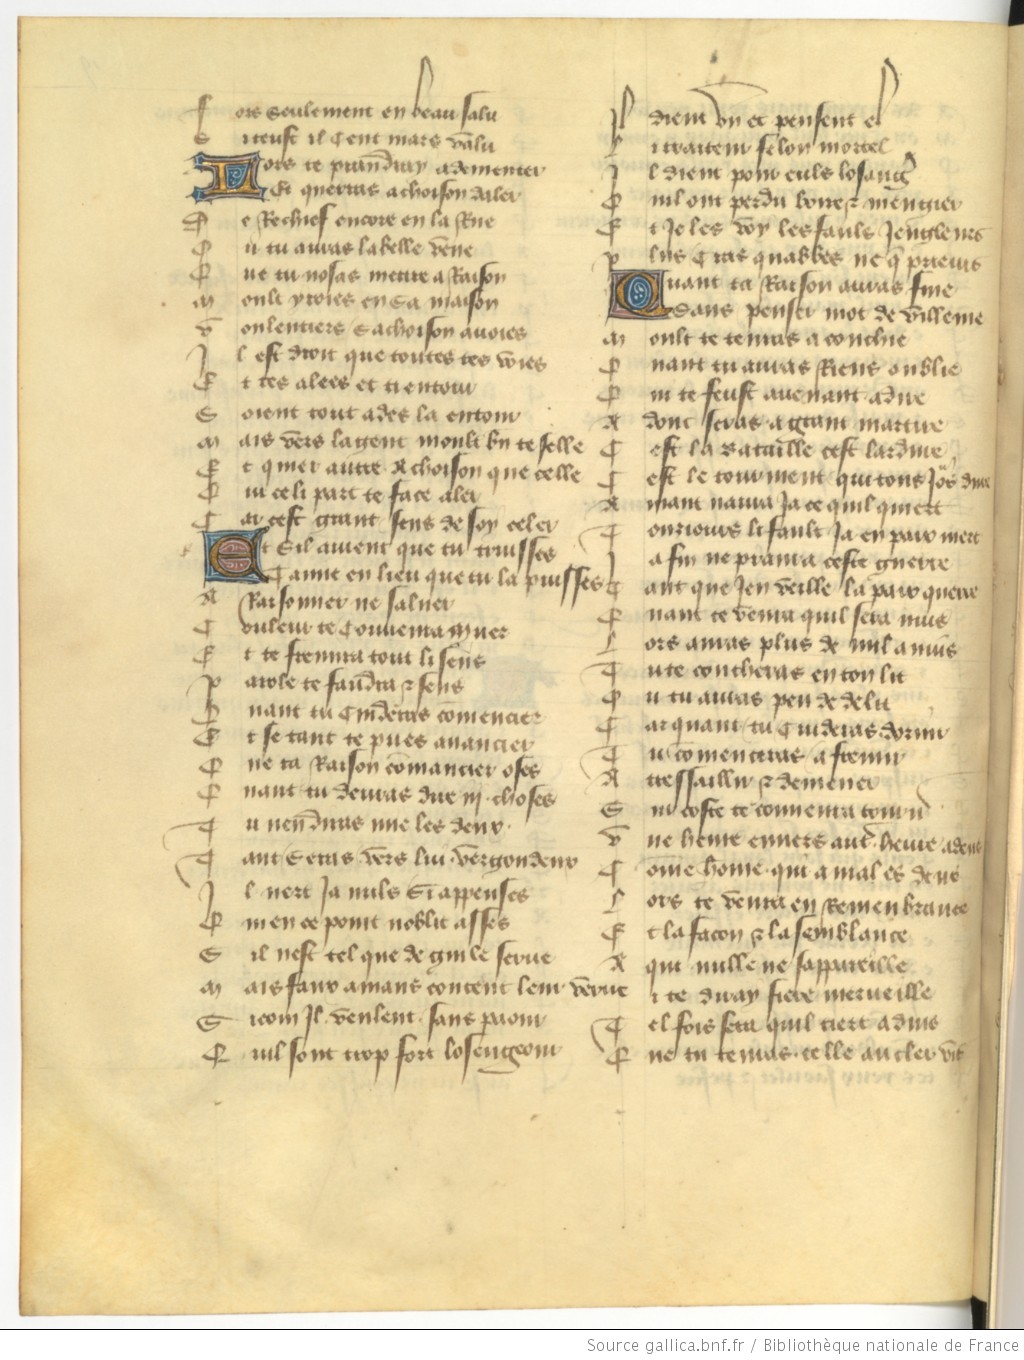 F ors seulement en beau salu
S iteust il Cent mars valu
Lors te prandray adementer
Et querras achoison daler
D e Rechief encore en la Rue
O u tu auras la belle veue
Q ue tu nosas mettre a Raison
M oult yroies en sa maison
V oulentiers sachoison auoies
I l est droit que toutes tes voies
E t tes alees et ti entour
S oient tout ades la entour
M ais vers la gent moult bn te selle
E t quier autre Achoison que celle
Q ui celi part te face aler
C ar cest grant sens de soy celer
Et Sil auient que tu truisses
Tamie en lieu que tu la puisses
A Raisonner ne saluer
C ouleur te Conuenra muer
E t te fremira tout li sens
P arole te faudra & sens
Q uant tu Cuideras comencier
E t se tant te pues auancier
Q ue ta Raison comancier oses
Q uant tu deuras dire iij choses
T u nen diras mie les deux
T ant Seras vers lui vergondeux
I l niert Ja nuls Si appenses
Q ui en ce point noblit asses
S il nest tel que de guile serue
M ais faux amans content leur verue
S icom Il veulent sans paour
Q uil sont trop fort losengeour
Il dient vn et pensent el
L i traiteur felon mortel
I l dient pour euls losang
Q uil ont perdu boire & mengier
E t Je les voy les fauls Jengleurs
P lus Cras quabbes ne q prieurs
Quant ta Raison auras finee
Sans penser mot de villenie
M oult te tenras a conchie
Q uant tu auras Riens oublie
Q ui te feust auenant a dire
A donc seras a grant martire
C est la Bataille cest lardure
C est le tourment qui tous Jors dure
A mant naura Ja ce quil quiert
T ousiours li fault Ja en paix niert
J a fin ne prandra ceste guerre
T ant que Jen veille la paix querre
Q uant ce venra quil sera nuis
L ors auras plus de mil anuis
T u te coucheras en ton lit
O u tu auras peu de delit
C ar quant tu Cuideras dormir
T u comenceras a fremir
A tressaillir & demener
S ur coste te conuenra tourn
V ne heure enuers autr heure adens
C ome home qui a mal es dens
L ors te venra en Remenbrance
E t la facon & la semblance
A qui nulle ne sappareille
S i te diray fiere merueille
T el fois sera quil tiert aduis
Q ue tu tenras celle au cler vis
Source gallica.bnf.fr / Bibliothèque nationale de France